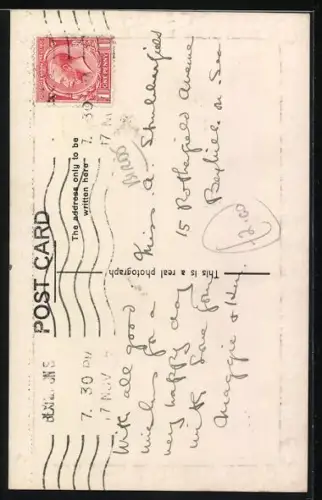 POST CARD
The address only to be
written here
This is a real photograph
ONE PENNY
7.30 PM
17 NOV
7.30
17 N
With all good
wishes for a
very happy day
with love from
Maggie &
Miss A.
15 Rotherfield Avenue
Bexhill-on-Sea
12.00